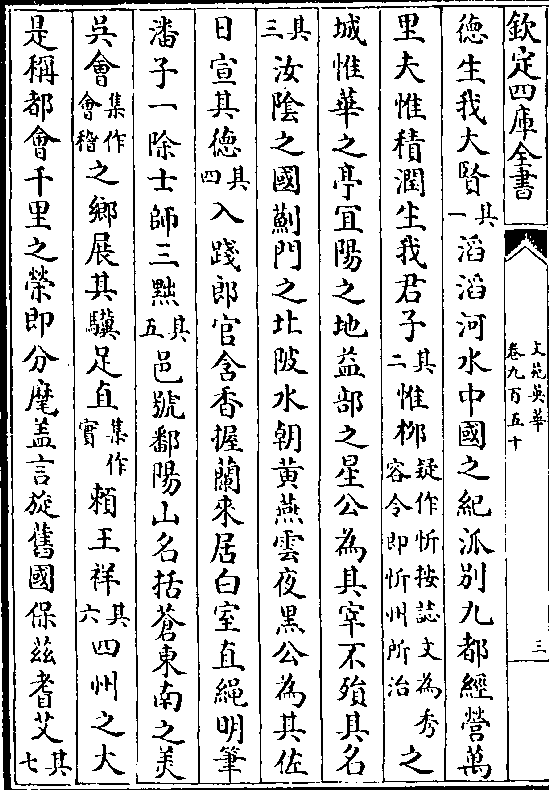 欽定四庫全書
文苑英華
卷九百五十
三
德生我大賢其一滔滔河水中國之紀派别九都經營萬
里夫惟積潤生我君子其二惟柳疑作忻按誌文為秀容令即忻州所治之
城惟華之亭宜陽之地益部之星公為其宰不殞其名
其三汝陰之國薊門之北陂水朝黄燕雲夜黑公為其佐
日宣其德其四入踐郎官含香握蘭來居白室直繩明筆
潘子一除士師三黜其五邑號鄱陽山名括蒼東南之美
吳會集作會稽之鄉展其驥足直集作實賴王祥其六四州之大
是稱都會千里之榮即分麾盖言旋舊國保兹耆艾其七